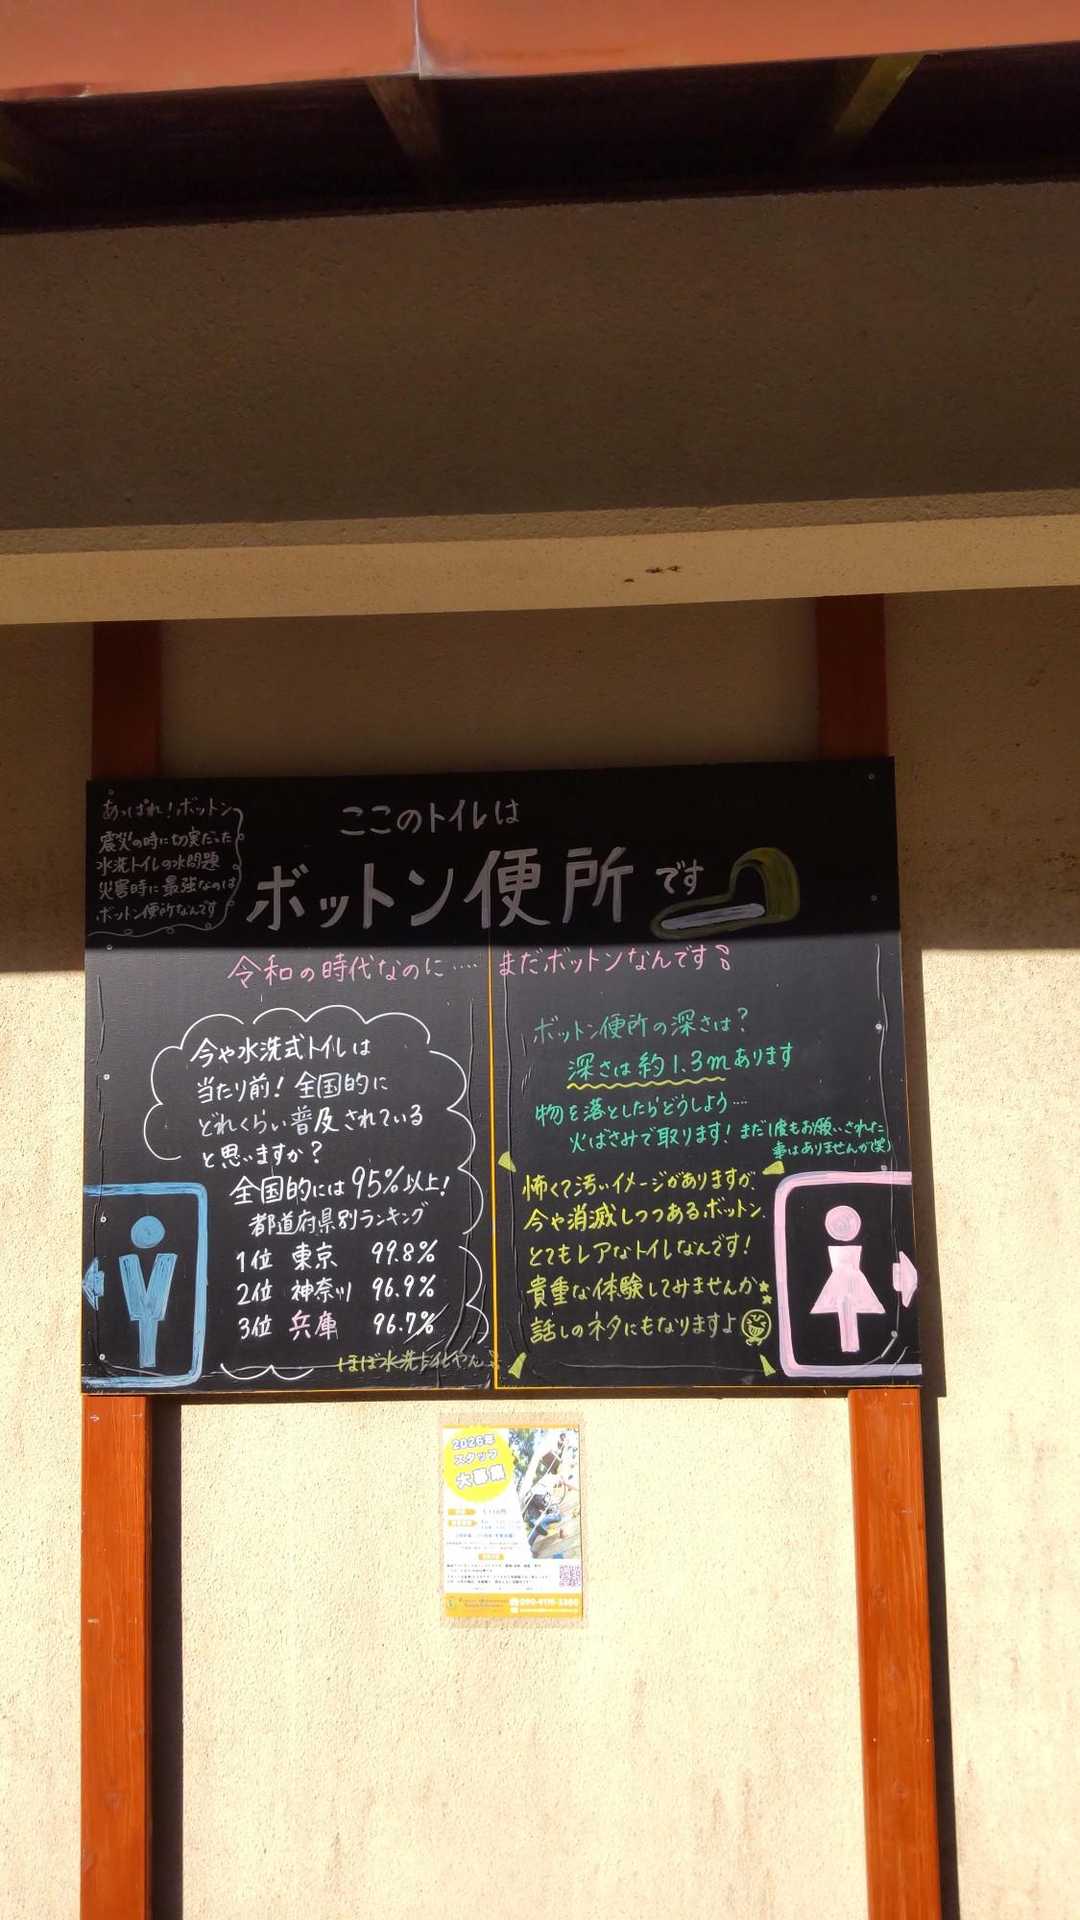 あっぱれ!ボットン
震災の時に切実だった
水洗トイレの水問題
災害時に最強なのは
ボットン便所なんです
ここのトイレは
ボットン便所です
令和の時代なのに‥‥
まだボットンなんです
今や水洗式トイレは
当たり前!全国的に
どれくらい普及されている
と思いますか?
全国的には95%以上!
都道府県別ランキング
1位 東京 99.8%
2位 神奈川 96.9%
3位 兵庫 96.7%
ほぼ水洗
ボットン便所の深さは?
深さは約1.3mあります
物を落としたらどうしよう‥‥
火ばさみで取ります!まだ1度もお願いされた
事はありませんが(笑)
怖くて汚いイメージがありますが、
今や消滅しつつあるボットン。
とてもレアなトイレなんです!
貴重な体験してみませんか
話しのネタにもなりますよ
2026年
スタッフ
大募集